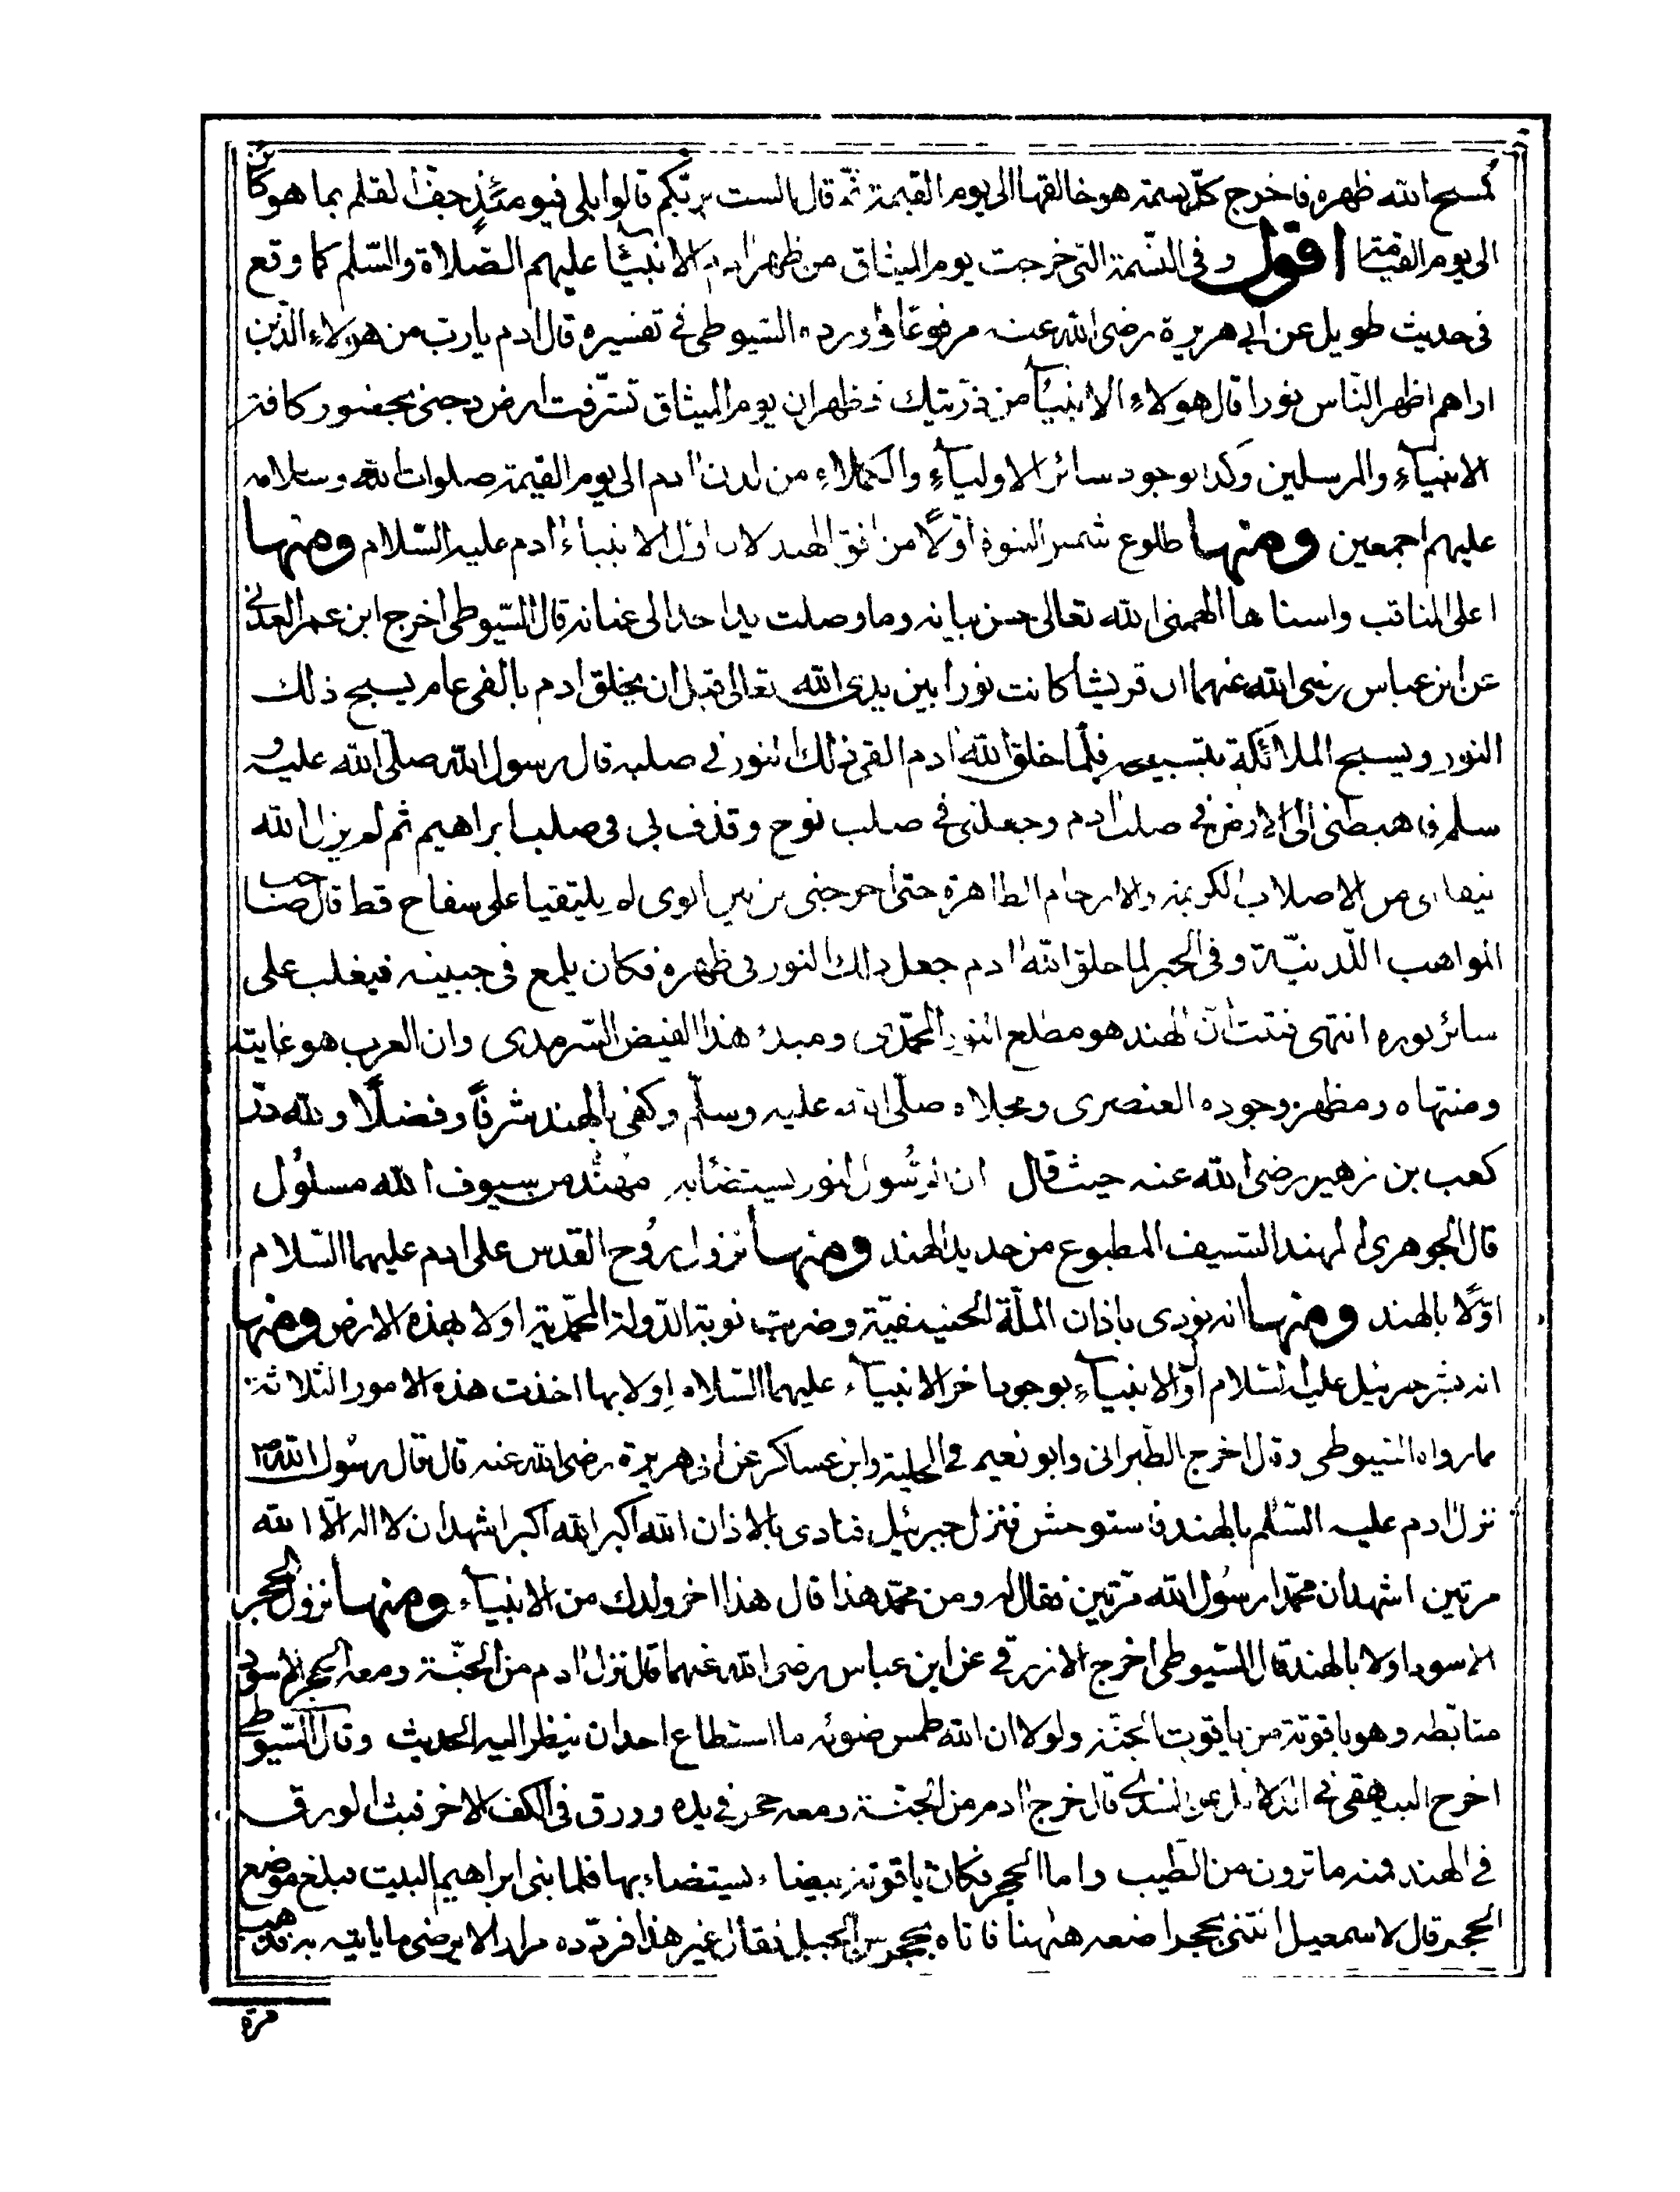 مسح الله ظهره فاخرج كلّ نسمة هو خالقها الى يوم القيمة ثمّ قال الست بربّكم قالوا بلى فيومئذٍ جفّ القلم بما هو كائن
الى يوم القيامة اقول وفى النّسمة التى خرجت يوم الميثاق من ظهر الانبيآء عليهم الصّلاة والسّلم كما وقع
فى حديث طويل عن ابى هريرة رضى الله عنه مرفوعًا اورده السّيوطى فى تفسيره قال ادم يا ربّ من هولاء الذّين
اراهم اظهر النّاس نورا قال هولاءِ الانبيآء من ذرّيتك فظهر ان يوم الميثاق تشرّفت ارض دجنى بحضور كافة
الانبيآءِ والمرسلين وكذا بوجود سائر الاوليآءِ والكملاءِ من لدن ادم الى يوم القيمة صلوات الله وسلامه
عليهم اجمعين ومنها طلوع شمس النبوة اوّلًا من افق الهند لان اوّل الانبياء ادم عليه السّلام ومنها
اعلى المناقب واسناها الهمنى الله تعالى حسن بيانه وما وصلت يد احد الى عنانه قال السّيوطى اخرج ابن عمر العدنى
عن ابن عباس رضى الله عنهما ان قريشا كانت نورا بين يدى الله تعالى قبل ان يخلق ادم بالفى عام يسبح ذلك
النور ويسبح الملائكة بتسبيحه فلمّا خلق الله ادم القى ذلك النور فى صلبه قال رسول الله صلّى الله عليه و
سلم فاهبطنى الى الارض فى صلب ادم وجعلنى فى صلب نوح وقذف بى فى صلب ابراهيم ثم لم يزل الله
ينقلنى من الاصلاب الكريمة والارحام الطاهرة حتى اخرجنى من بين ابوى لم يلتقيا على سفاح قط قال صاحب
المواهب اللّدنيّة وفى الخبر لما خلق الله ادم جعل ذلك النور فى ظهره فكان يلمع فى جبينه فيغلب على
سائر نوره انتهى فثبت انّ الهند هو مطلع النور المحمّدى ومبدء هذا الفيض السّرمدى وان العرب هو غايته
ومنتهاه ومظهر وجوده العنصرى ومجلاه صلّى الله عليه وسلّم وكفى بالهند شرفًا وفضلًا ولله درّ
كعب بن زهير رضى الله عنه حيث قال ان الرّسُول لنور يستضأبه مهنّد من سيوف الله مسلول
قال الجوهرى المهند السّيف المطبوع من حديد الهند ومنها نزول روح القدس على ادم عليهما السّلام
اوّلًا بالهند ومنها انه نودى باذان الملّة الحنيفيّة وضربت نوبة الدّولة المحمّدية اولا بهذه الارض ومنها
انه بشر جبرئيل عليه السّلام اوّل الانبيآءِ بوجود اخر الانبيآء عليهما السّلام اولا بها اخذت هذه الامور الثلاثة
مما رواه السّيوطى وقال اخرج الطّبرانى وابو نعيم فى الحلية وابن عساكر عن ابى هريرة رضى الله عنه قال قال رسُول الله صم
نزل ادم عليه السّلم بالهند فاستوحش فنزل جبرئيل فنادى بالاذان الله اكبر الله اكبر اشهد ان لا اله الّا الله
مرتين اشهد ان محمّدا رسُول الله مرّتين فقال له ومن محمّد هذا قال هذا اخر ولدك من الانبيآء ومنها نزول الحجر
الاسود اولا بالهند قال السّيوطى اخرج الازرقى عن ابن عباس رضى الله عنهما قال نزل ادم من الجنّة ومعه الحجر الاسود
متابّطه وهو ياقوتة من ياقوت الجنّة ولولا ان الله طمس ضوئه ما استطاع احد ان ينظر اليه الحديث وقال السّيوطى
اخرج البيهقى فى الدّلائل عن السّدى قال خرج ادم من الجنّة ومعه حجر فى يده وورق فى الكف الاخر فنبث الورق
فى الهند فمنه ماترون من الطّيب واما الحجر فكان ياقوتة بيضاء يستضاء بها فلما بنى ابراهيم البيت فبلغ موضع
الحجر قال لاسمعيل ائتنى بحجر اضعه هٰهنا فاتاه بحجر من الجبل فقال غير هذا فردّه مرارا لا يرضى ما ياتيه به فذهب
مرّة